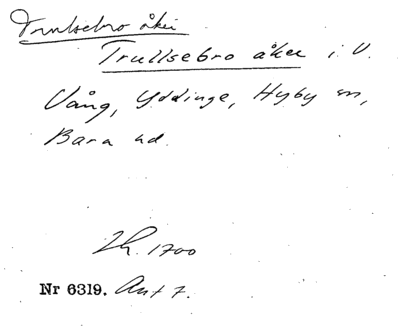 Trullsebro åker
Trullsebro åker i V.
Vång, Yddinge, Hyby sn,
Bara hd.
Lh. 1700
Nr 6319. Ant 7.